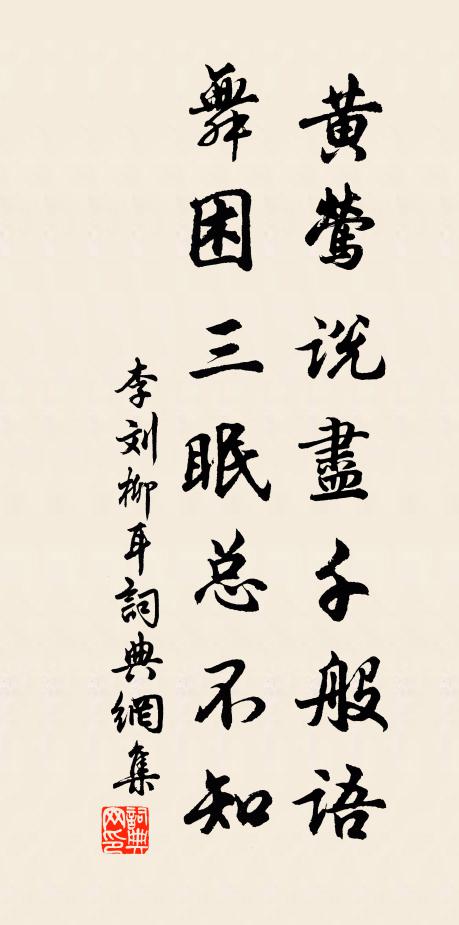 黃鶯説盡千般語
舞困三眠总不知
李刘柳耳詞典網集
詞典网印